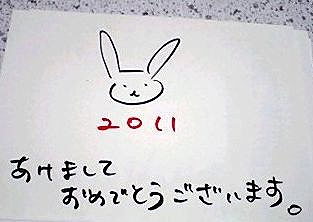 2011
あけまして
おめでとうございます。